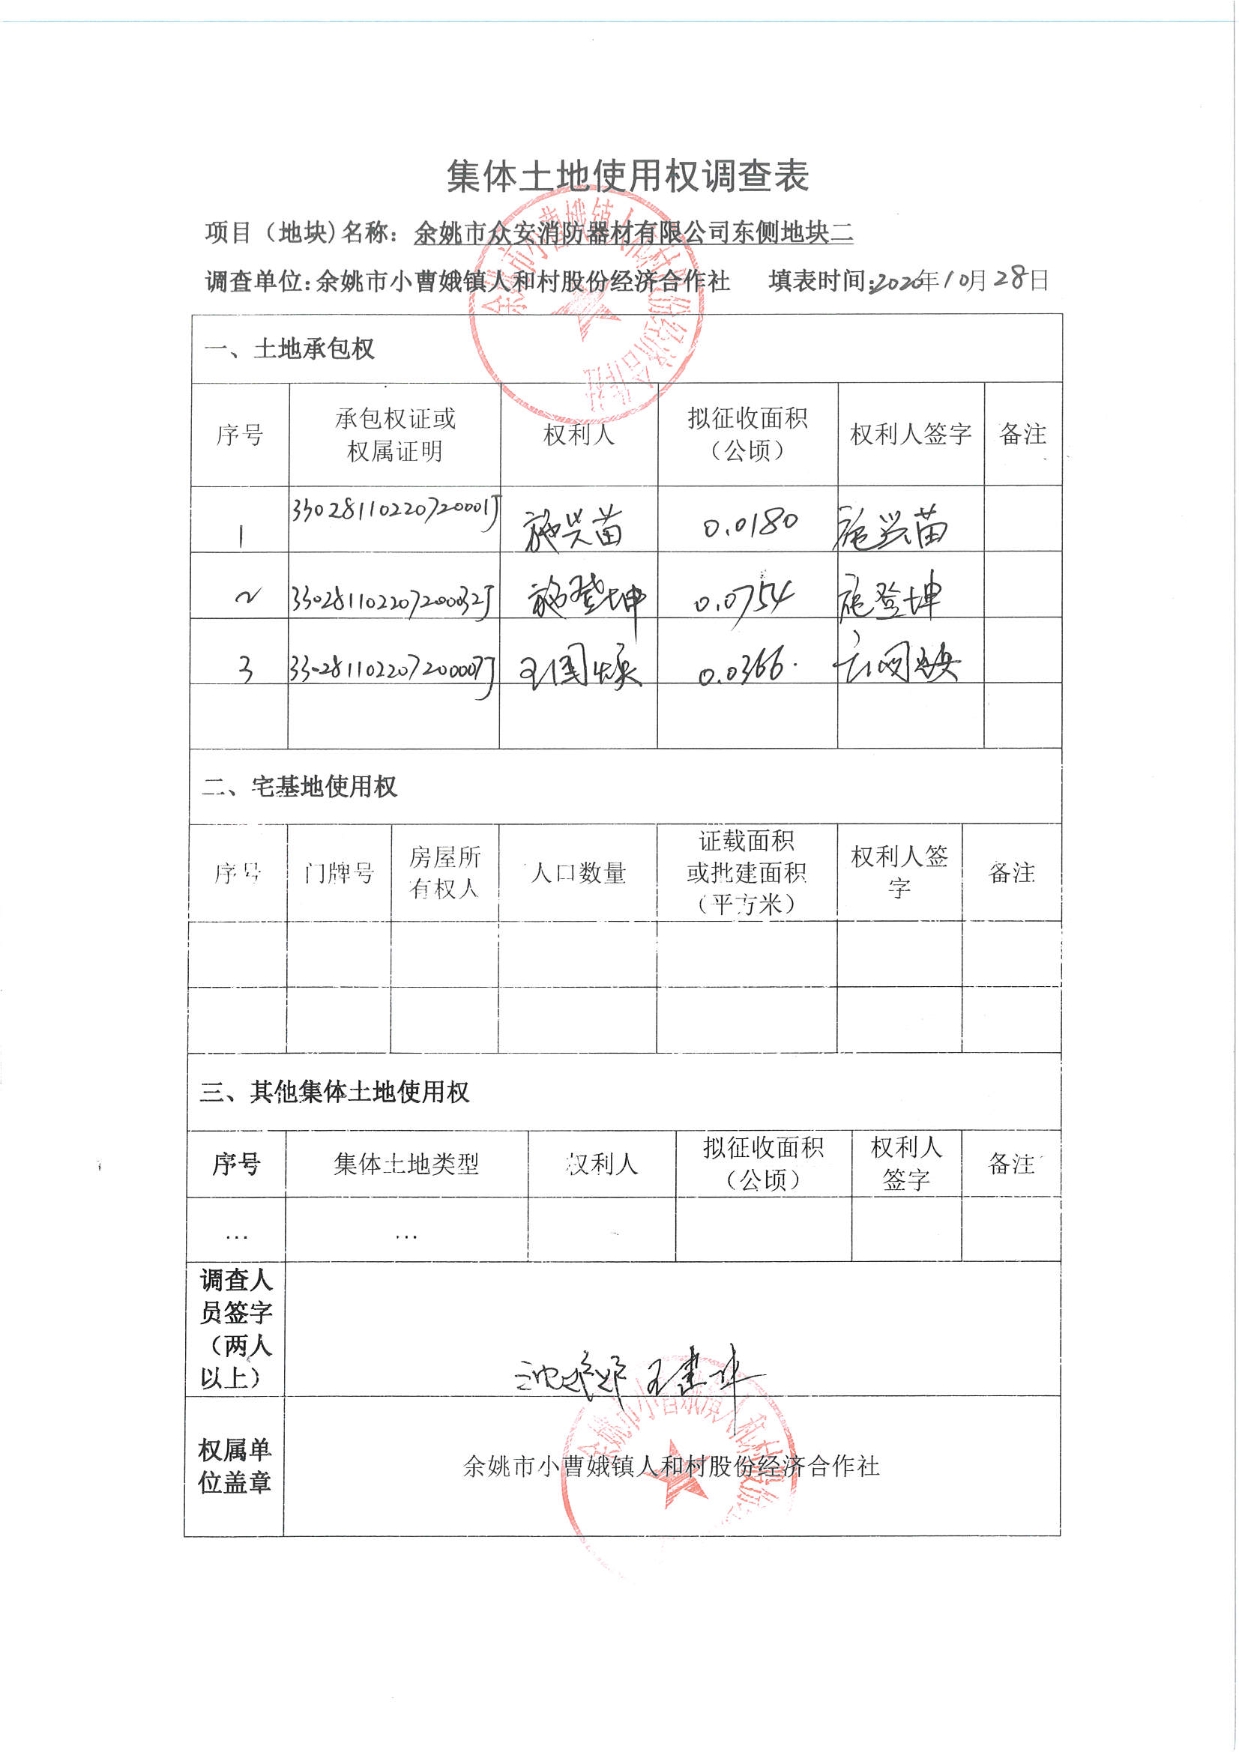 集体土地使用权调查表
项目（地块)名称：余姚市众安消防器材有限公司东侧地块二
调查单位:余姚市小曹娥镇人和村股份经济合作社 填表时间:2020年10月28日
一、土地承包权
序号 承包权证或权属证明 权利人 拟征收面积（公顷） 权利人签字 备注
1 330281102207200001J 施兴苗 0.0180 施兴苗
2 330281102207200032J 施登坤 0.0754 施登坤
3 330281102207200007J 王国焕 0.0366 王国焕
二、宅基地使用权
序号 门牌号 房屋所有权人 人口数量 证载面积或批建面积（平方米） 权利人签字 备注
三、其他集体土地使用权
序号 集体土地类型 权利人 拟征收面积（公顷） 权利人签字 备注
… …
调查人员签字（两人以上）
王建
权属单位盖章 余姚市小曹娥镇人和村股份经济合作社
余姚市小曹娥镇人和村股份经济合作社